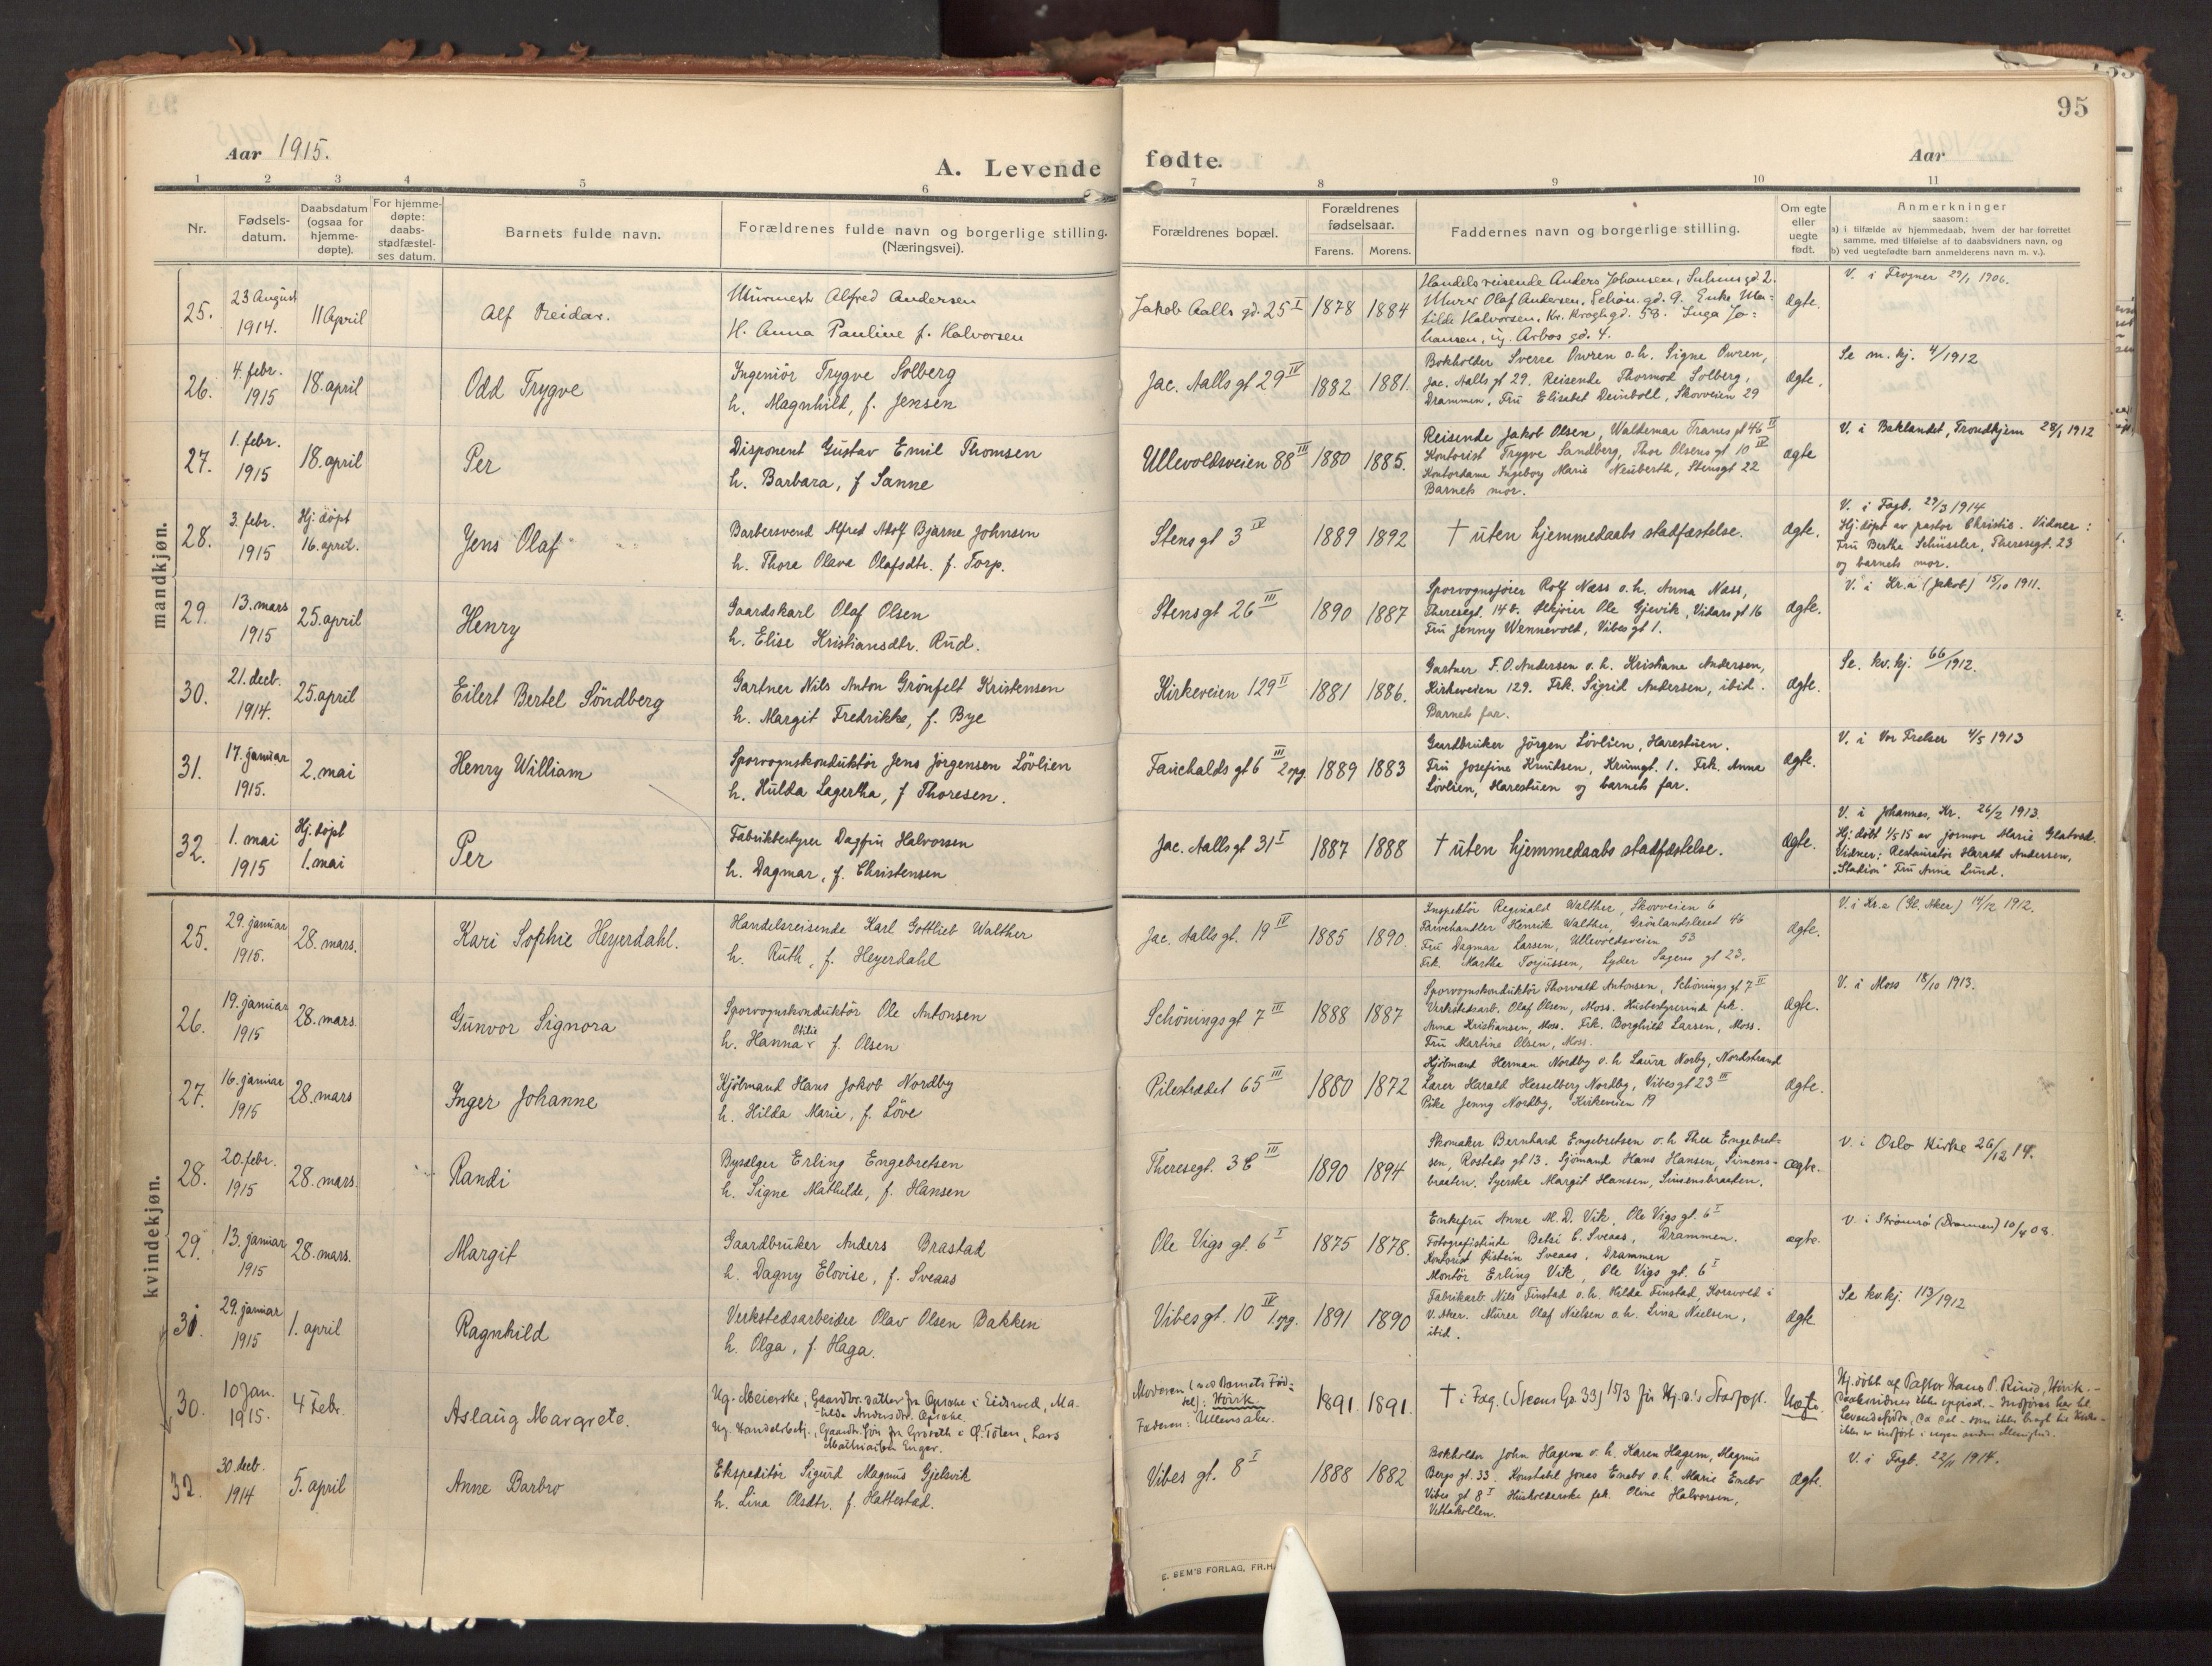 95
Aar 1915.
A. Levende fødte.
Aar
1 2 3 4 5 6 7 8 9 10 11
Nr.
Fødsels-
datum.
Daabsdatum
(ogsaa for
hjemme-
døpte).
For hjemme-
døpte:
daabs-
stadfæstel-
ses datum.
Barnets fulde navn.
Forældrenes fulde navn og borgerlige stilling.
(Næringsvei).
Forældrenes bopæl.
Forældrenes
fødselsaar.
Farens. Morens.
Faddernes navn og borgerlige stilling.
Om egte
eller
uegte
født.
Anmerkninger
saasom:
a) i tilfælde av hjemmedaab, hvem der har forrettet
samme, med tilføielse af to daabsvidners navn, og
b) ved uegtefødte barn anmelderens navn m. v.).
mandkjøn.
25.
23 August
1914.
11 April
Alf Reidar.
Murmest Alfred Andersen
H. Anna Pauline f. Halvorsen
Jakob Aalls gd. 25 I
1878 1884
Handelsreisende Anders Johansen, Suhmsgd. 2.
Murer Olaf Andersen, Schøn. gd. 9. Enke Ma-
tilde Halvorsen, Kr. Kroghgd. 58. Inga Jo-
hansen, ug. Arbos gd. 4.
ægte.
V. i Frogner 29/1 1906.
26.
4. febr.
1915
18. april
Odd Trygve
Ingeniör Trygve Solberg
h. Magnhild, f. Jensen
Jac. Aalls gt 29 IV
1882 1881.
Bokholder Sverre Owren o.h. Signe Owren,
Jac. Aalls gt 29. Reisende Thormod Solberg,
Drammen. Fru Elisabet Deinboll, Skovveien 29
ægte.
Se m. kj. 4/1912
27.
1. febr.
1915
18. april
Per
Disponent Gustav Emil Thomsen
h. Barbara, f Sanne
Ullevoldsveien 88 III
1880 1885.
Reisende Jakob Olsen, Waldemar Tranes gt 46 II
Kontorist Trygve Sandberg, Thor Olsens gt 10 IV
Kontordame Ingeborg Marie Neuberth, Stensgt 22
Barnets mor.
ægte
V. i Baklandet, Trondhjem 28/1 1912
28.
3. febr.
1915
Hj. döpt
16. april.
Jens Olaf
Barbersvend Alfred Adolf Bjarne Johnsen
h. Thora Olava Olafsdtr. f. Torp.
Stens gt 3 IV
1889 1892
† uten hjemmedaabs stadfæstelse.
ægte.
V. i Fagb. 29/3 1914
Hj. döpt av pastor Christie. Vidner:
Fru Berthe Schüssler, Theresegt. 23
og barnets mor.
29.
13. mars
1915
25. april
Henry
Gaardskarl Olaf Olsen
h. Elise Kristiansdtr. Rud.
Stensgt 26 III
1890 1887
Sporvognsfører Rolf Næss o.h. Anna Næss,
Theresegt. 14 b. Ole Gjevik, Vidars gt 16
Fru Jenny Wennevold, Vibesgt 1.
ægte.
V. i Kr.a (Jakob) 15/10 1911.
30.
21. decb.
1914.
25. april
Eilert Bertel Söndberg
Gartner Nils Anton Grönfelt Kristensen
h. Margit Fredrikke, f. Bye
Kirkeveien 129 II
1881 1886.
Gartner F.O. Andersen o.h. Kristiane Andersen,
Kirkeveien 129. Frk. Sigrid Andersen, ibid.
Barnets far.
ægte.
Se. kv. kj. 66/1912.
31.
17. januar
1915.
2. mai
Henry William
Sporvognskonduktör Jens Jörgensen Lövlien
h. Hulda Lagertha, f Thoresen.
Fauchalds gt 6 III 2 opg.
1889 1883
Gardbruker Jörgen Lövlien, Harestuen.
Fru Josefine Knudsen, Krumgt. 1. Frk. Anna
Lövlien, Harestuen og barnets far.
ægte.
V. i Vor Frelser 4/5 1913
32.
1. mai
1915
Hj. döpt
1. mai
Per
Fabrikbestyrer Dagfin Halvorsen
h. Dagmar, f. Christensen
Jac. Aalls gt 31 I
1887 1888
† uten hjemmedaabs stadfæstelse.
ægte.
V. i Johannes, Kr. 26/2 1913.
Hj. döbt 1/5 15 av jormor Marie Glatved.
Vidner: Restauratör Harald Andersen,
"Stadion" Fru Anna Lund.
kvindekjøn.
25.
29. januar
1915.
28. mars.
Kari Sophie Heyerdahl.
Handelsreisende Karl Gottlieb Walther
h. Ruth, f. Heyerdahl
Jac. Aalls gt. 19 IV
1885 1890.
Inspektör Reginald Walther, Skovveien 6
Farvehandler Henrik Walther, Grönlandsleret 46
Fru Dagmar Larsen, Ullevoldsveien 53
Frk. Martha Torjussen, Lyder Sagens gt 23.
ægte.
V. i Kr.a (Gl. Aker) 14/12 1912.
26.
19. januar
1915
28. mars
Gunvor Signora
Sporvognskonduktör Ole Antonsen
h. Hanna Otilie f. Olsen
Schönings gt 7 III
1888 1887
Sporvognskonduktör Thorvald Antonsen, Schönings gt 7 III
Verkstedsarb. Olaf Olsen, Moss. Husbestyrerinde frk.
Anna Kristiansen, Moss. Frk. Borghild Larsen, Moss.
Fru Martine Olsen, Moss.
ægte.
V. i Moss 18/10 1913.
27.
16. januar
1915
28. mars
Inger Johanne
Kjölmand Hans Jakob Nordby
h. Hilda Marie, f. Löve
Pilestrædet 65 III
1880 1872
Kjölmand Herman Nordby o.h Laura Norby, Nordstrand
Lærer Harald Hesselberg Nordby, Vibesgt 23 III
Pike Jenny Nordby, Kirkeveien 19
ægte.
28.
20. febr.
1915
28. mars.
Randi
Bysælger Erling Engebretsen
h. Signe Mathilde, f. Hansen
Theresegt. 3 C III
1890 1894
Skomaker Bernhard Engebretsen o.h Thea Engebret-
sen, Rosteds gt 13. Sjömand Hans Hansen, Simens-
braaten. Syerske Margit Hansen, Simensbraaten.
ægte.
V. i Oslo Kirke 26/12 14.
29.
13. januar
1915
28. mars.
Margit
Gaardbruker Anders Brastad
h. Dagny Elovise, f. Sveaas
Ole Vigs gt. 6 I
1875 1878.
Enkefru Anne M. D. Vik, Ole Vigs gt. 6 I
Fotografistinde Betzi C. Sveaas, Drammen.
Kontorist Øistein Sveaas, Drammen
Montör Erling Vik, Ole Vigs gt. 6 I
ægte.
V. i Strømsö (Drammen) 10/4 08.
31.
29. januar
1915
1. april
Ragnhild
Verkstedsarbeider Olav Olsen Bakken
h. Olga, f. Haga.
Vibes gt. 10 IV 1 opg.
1891 1890
Fabrikarb. Nils Finstad o.h. Hilda Finstad, Korsvold i
V. Aker. Murer Olaf Nielsen o.h. Lina Nielsen,
ibid.
ægte
Se kv. kj. 113/1912
30.
10 Jan.
1915.
4 Febr.
Aslaug Margrete.
Ug. Meierske, Gaardbr. datter fra i Eidsvod, Ma-
thilde Andersdtr.
Ug. Handelsbetj., Gaardbr. Søn fra i Ø. Toten, Lars
Mathiasen Enger.
Moderen (ved Barnets Fød-
sel): Hövik
Faderen: Ullensaker.
1891. 1891.
† i Fag. (Stens Gd. 33) 15/3 før Hj. d.'s Stadfæst.
Uægte.
Hj. döbt af Pastor Hans P. Ruud, Hövik. -
Daabsvidnes ikke opgivet. - Indføres her bl.
Levendefødte, da det - som ikke bragt til Kirke -
ikke er indført i nogen anden Menighed.
32.
30. decb.
1914
5. april
Anne Barbro
Ekspeditör Sigurd Magnus Gjelsvik
h. Lina Olsdtr. f. Hattestad.
Vibes gt. 8 I
1888 1882
Bokholder John Hagem o.h. Karen Hagem, Magnus
Bergs gt. 33. Konstabel Jonas Enebo o.h. Marie Enebo
Vibes gt 8 I Husholderske frk. Oline Halvorsen,
Vettakollen.
ægte.
V. i Fagb. 22/1 1914.
E. SEM'S FORLAG, FR.H